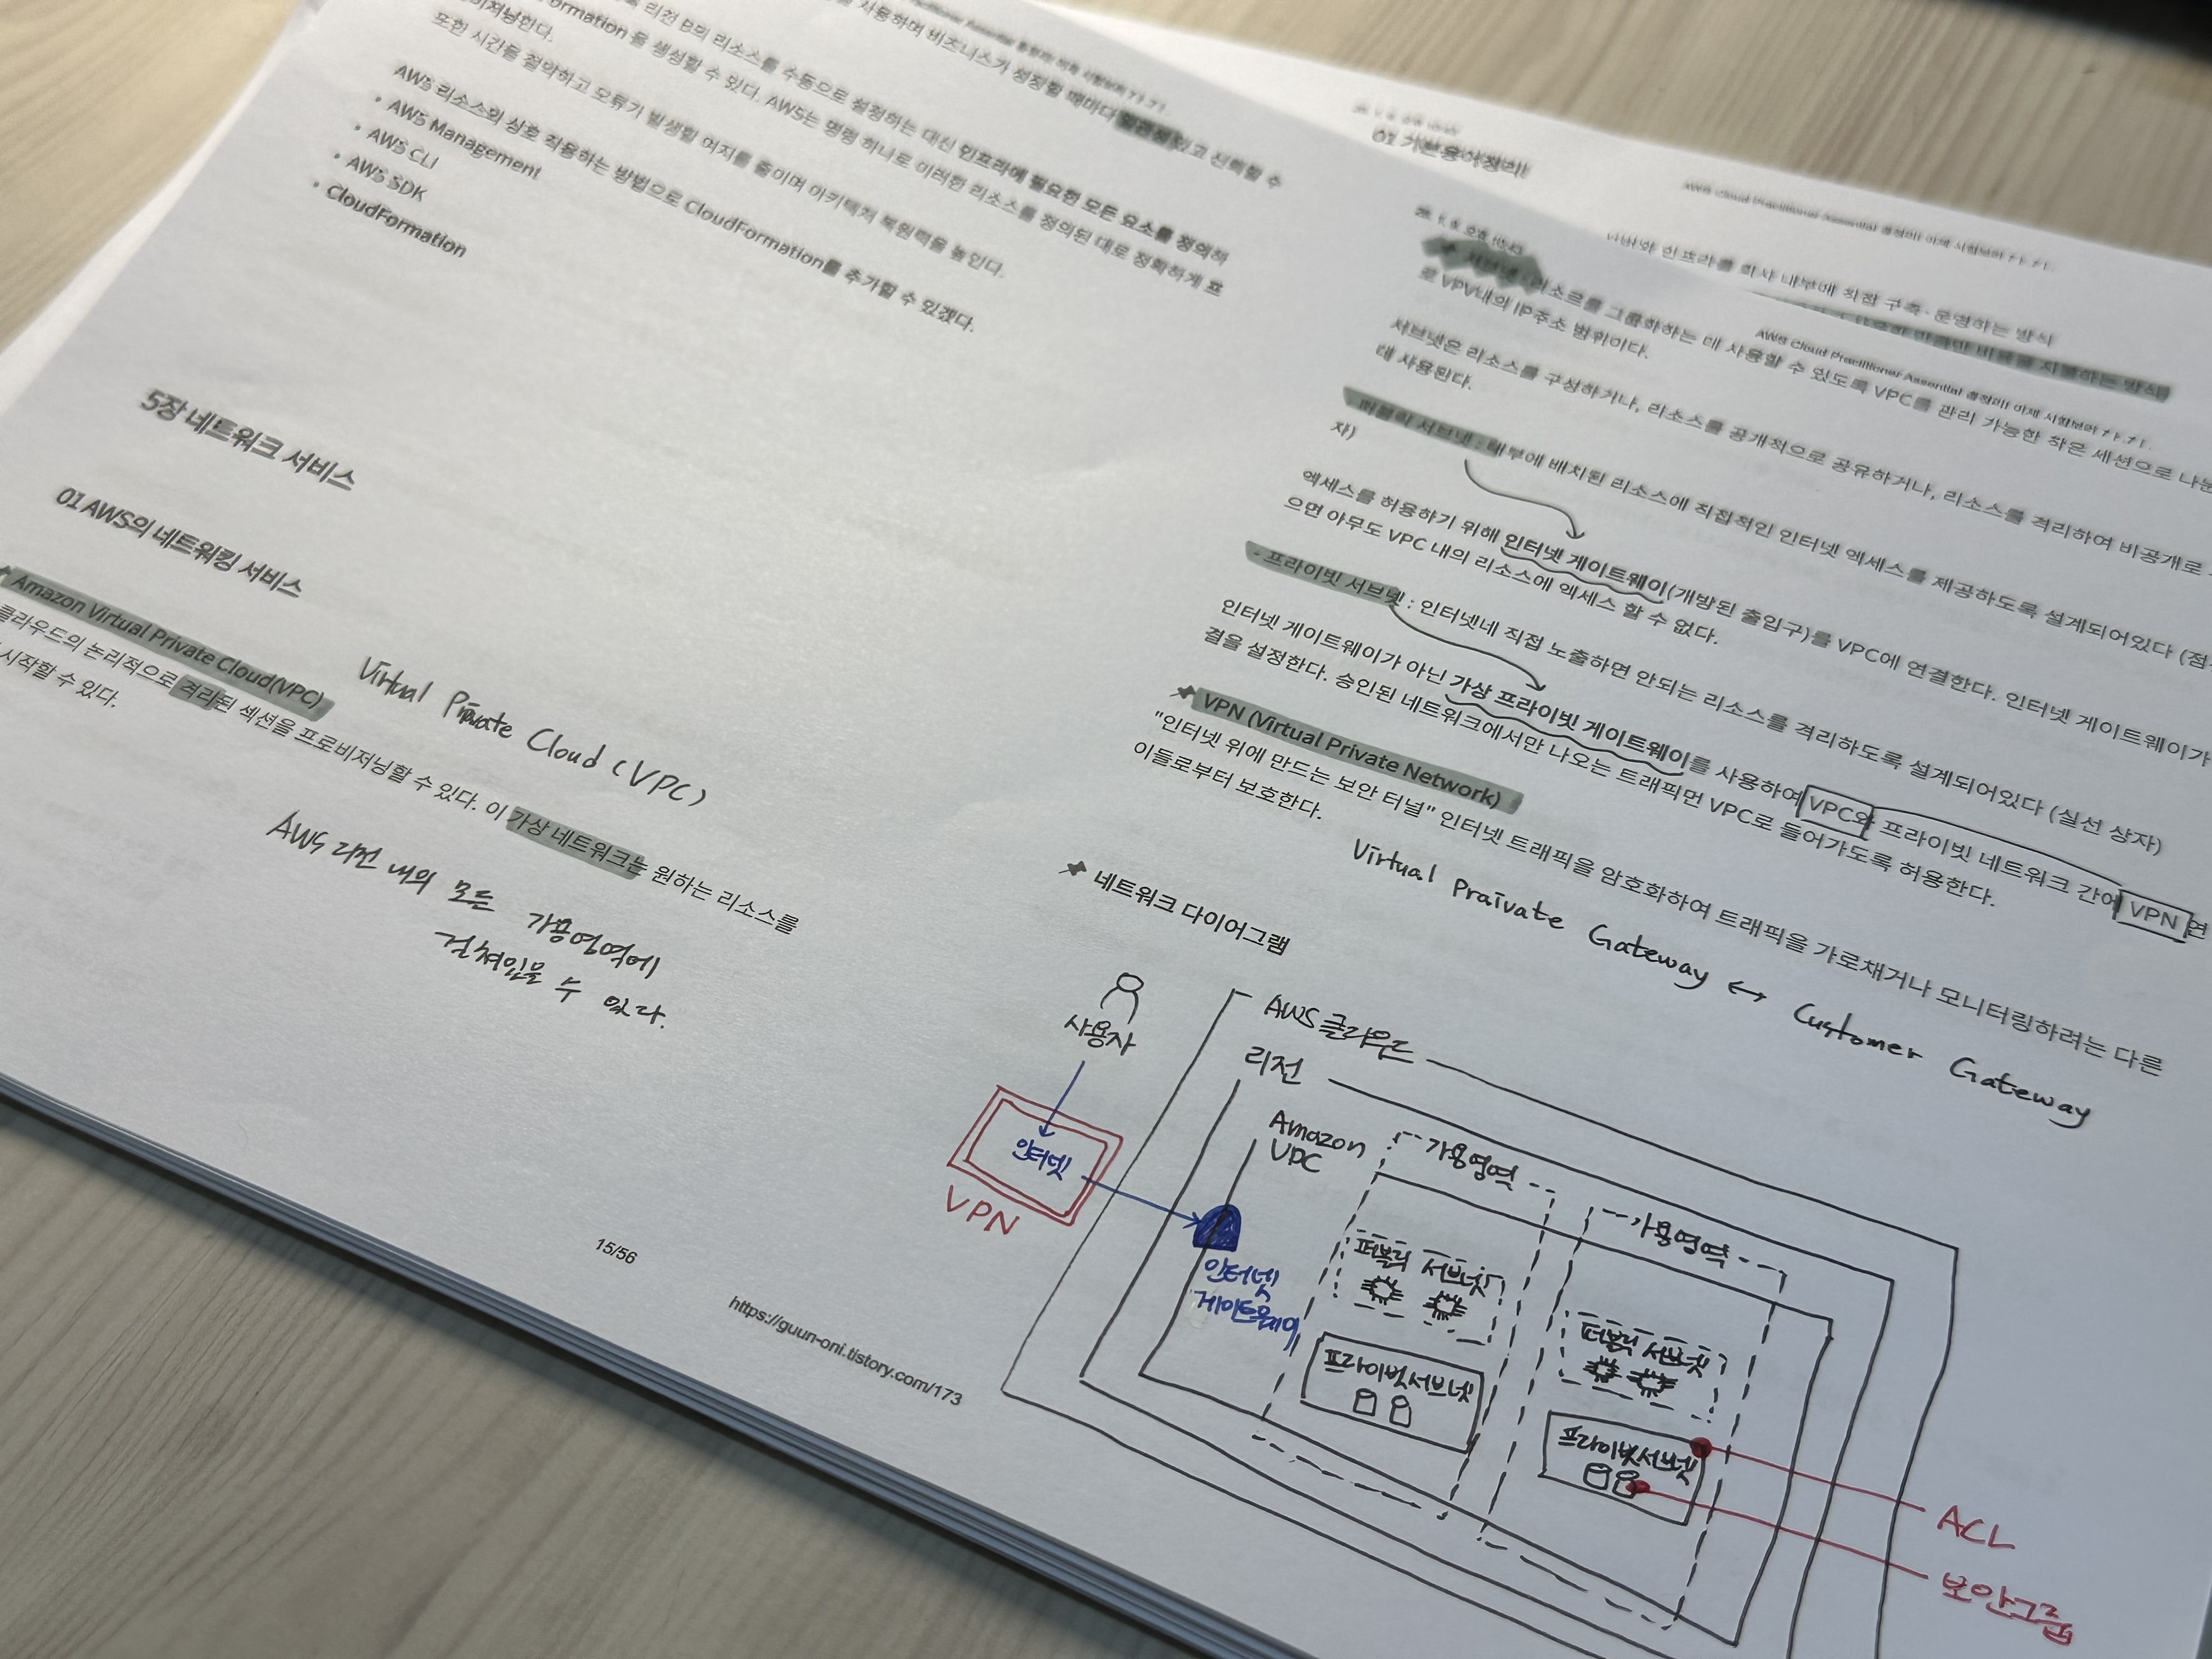 사용하며 비즈니스가 성장할 때마다 일관성있고 신뢰할 수
리전 B의 리소스를 수동으로 설정하는 대신 인프라에 필요한 모든 요소를 정의하
Formation 을 생성할 수 있다. AWS는 명령 하나로 이러한 리소스를 정의된 대로 정확하게 프
비저닝한다.
또한 시간을 절약하고 오류가 발생할 여지를 줄이며 아키텍처 복원력을 높인다.
AWS 리소스와 상호 작용하는 방법으로 CloudFormation를 추가할 수 있겠다.
• AWS Management
• AWS CLI
• AWS SDK
• CloudFormation
5장 네트워크 서비스
01 AWS의 네트워킹 서비스
Amazon Virtual Private Cloud(VPC)
Virtual Private Cloud (VPC)
클라우드의 논리적으로 격리된 섹션을 프로비저닝할 수 있다. 이 가상 네트워크는 원하는 리소스를
시작할 수 있다.
AWS 리전 내의 모든 가용영역에
걸쳐있을 수 있다.
15/56
https://guun-oni.tistory.com/173
01 기본용어정리!
AWS Cloud Practitioner Assential 총정리! 이제 시험보러 ㄱㄱ.ㄱ1.
인프라를 회사 내부에 직접 구축·운영하는 방식
비용을 지불하는 방식)
AWS Cloud Practitioner Assential 총정리! 이제 시험보러 ㄱㄱ.ㄱ1.
서브넷 리소스를 그룹화하는 데 사용할 수 있도록 VPC를 관리 가능한 작은 섹션으로 나눈
로 VPV내의 IP주소 범위이다.
서브넷은 리소스를 구성하거나, 리소스를 공개적으로 공유하거나, 리소스를 격리하여 비공개로
데 사용된다.
퍼블릭 서브넷 : 내부에 배치된 리소스에 직접적인 인터넷 엑세스를 제공하도록 설계되어있다 (점
자)
엑세스를 허용하기 위해 인터넷 게이트웨이(개방된 출입구)를 VPC에 연결한다. 인터넷 게이트웨이가
으면 아무도 VPC 내의 리소스에 엑세스 할 수 없다.
- 프라이빗 서브넷 : 인터넷네 직접 노출하면 안되는 리소스를 격리하도록 설계되어있다 (실선 상자)
인터넷 게이트웨이가 아닌 가상 프라이빗 게이트웨이를 사용하여 VPC와 프라이빗 네트워크 간에 VPN 연
결을 설정한다. 승인된 네트워크에서만 나오는 트래픽먼 VPC로 들어가도록 허용한다.
VPN (Virtual Private Network)
"인터넷 위에 만드는 보안 터널" 인터넷 트래픽을 암호화하여 트래픽을 가로채거나 모니터링하려는 다른
이들로부터 보호한다.
Virtual Praivate Gateway ↔ Customer Gateway
네트워크 다이어그램
사용자
인터넷
VPN
AWS 클라우드
리전
Amazon
VPC
인터넷
게이트웨이
가용영역
퍼블릭 서브넷
프라이빗서브넷
가용영역
퍼블릭 서브넷
프라이빗서브넷
ACL
보안그룹